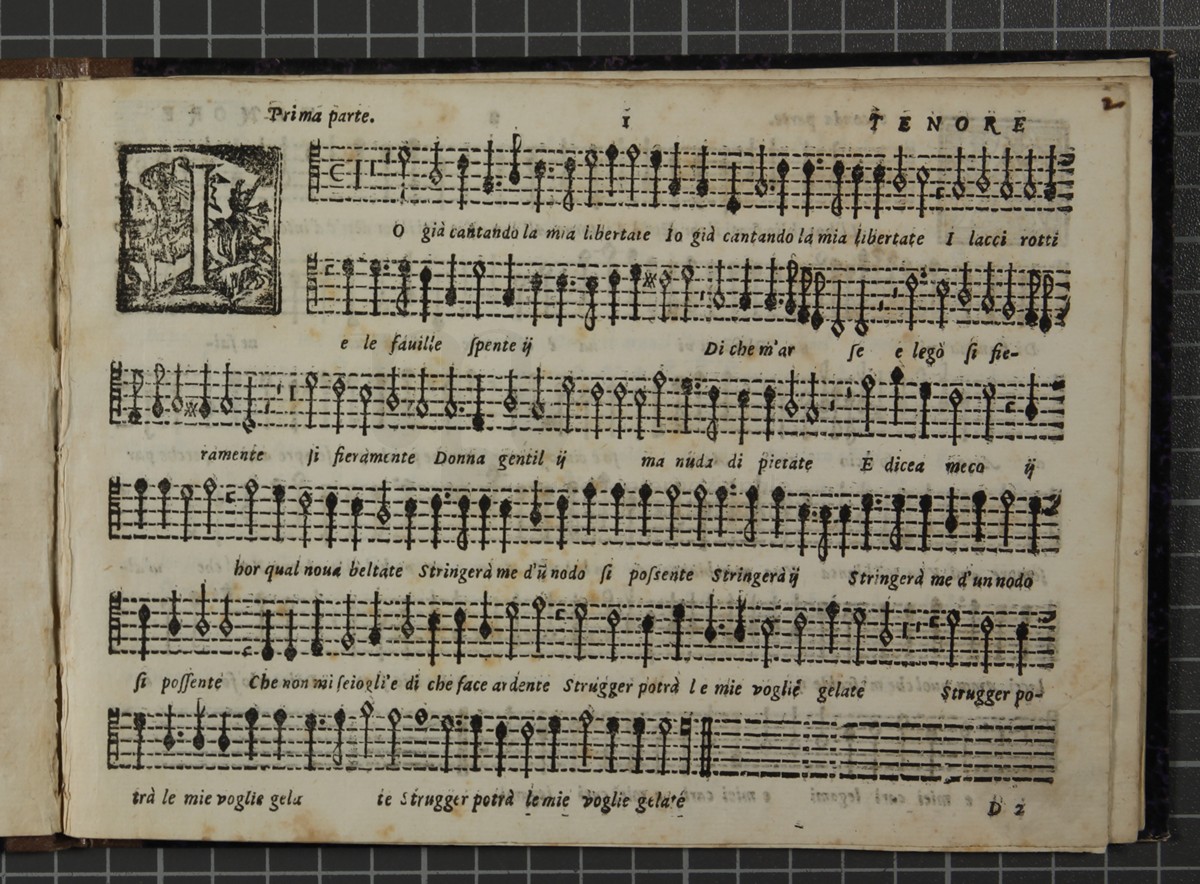 Prima parte. 1 TENORE 2
I
O già cantando la mia libertate Io già cantando la mia libertate I lacci rotti
e le fauille spente ij Di che m'ar se e legò si fie-
ramente si fieramente Donna gentil ij ma nuda di pietate E dicea meco ij
hor qual noua beltate Stringerà me d'ũ nodo si possente Stringerà ij Stringerà me d'un nodo
si possente Che non mi scioglie di che face ardente Strugger potrà le mie voglie gelate Strugger po-
trà le mie voglie gela te Strugger potrà le mie voglie gelate
D 2